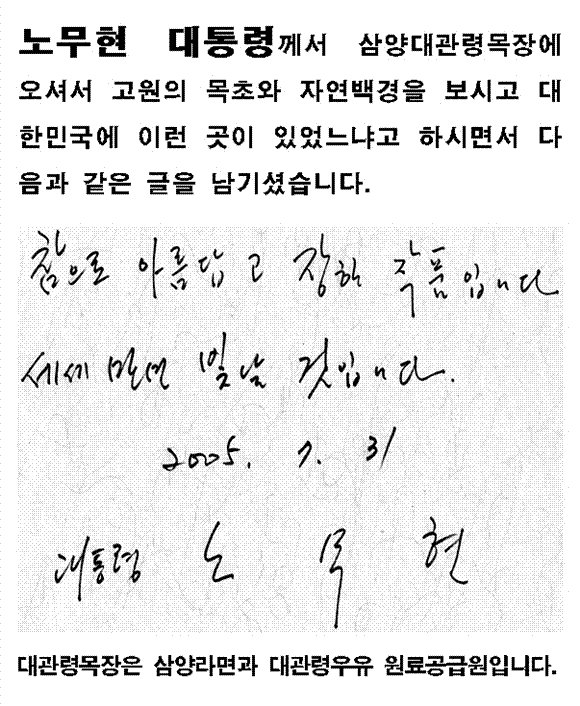 노무현 대통령께서 삼양대관령목장에
오셔서 고원의 목초와 자연백경을 보시고 대
한민국에 이런 곳이 있었느냐고 하시면서 다
음과 같은 글을 남기셨습니다.
참으로 아름답고 장한 작품입니다
세세만면 빛날 것입니다.
2005. 7. 31
대통령 노무현
대관령목장은 삼양라면과 대관령우유 원료공급원입니다.